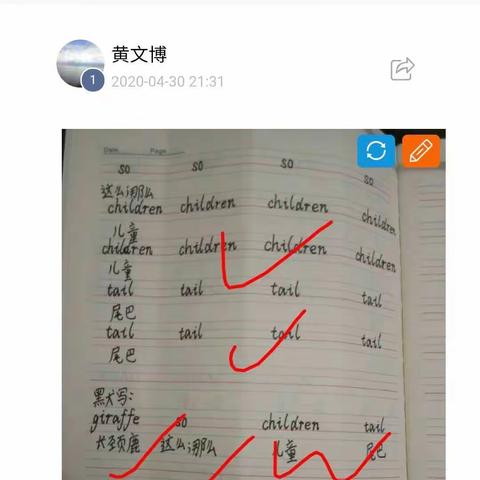 黄文博
1
2020-04-30 21:31
Date Page
so so so so
这么;那么
children children children children
儿童
children children children children
儿童
tail tail tail tail
尾巴
tail tail tail tail
尾巴
默写:
giraffe so children tail
长颈鹿 这么;那么 儿童 尾巴